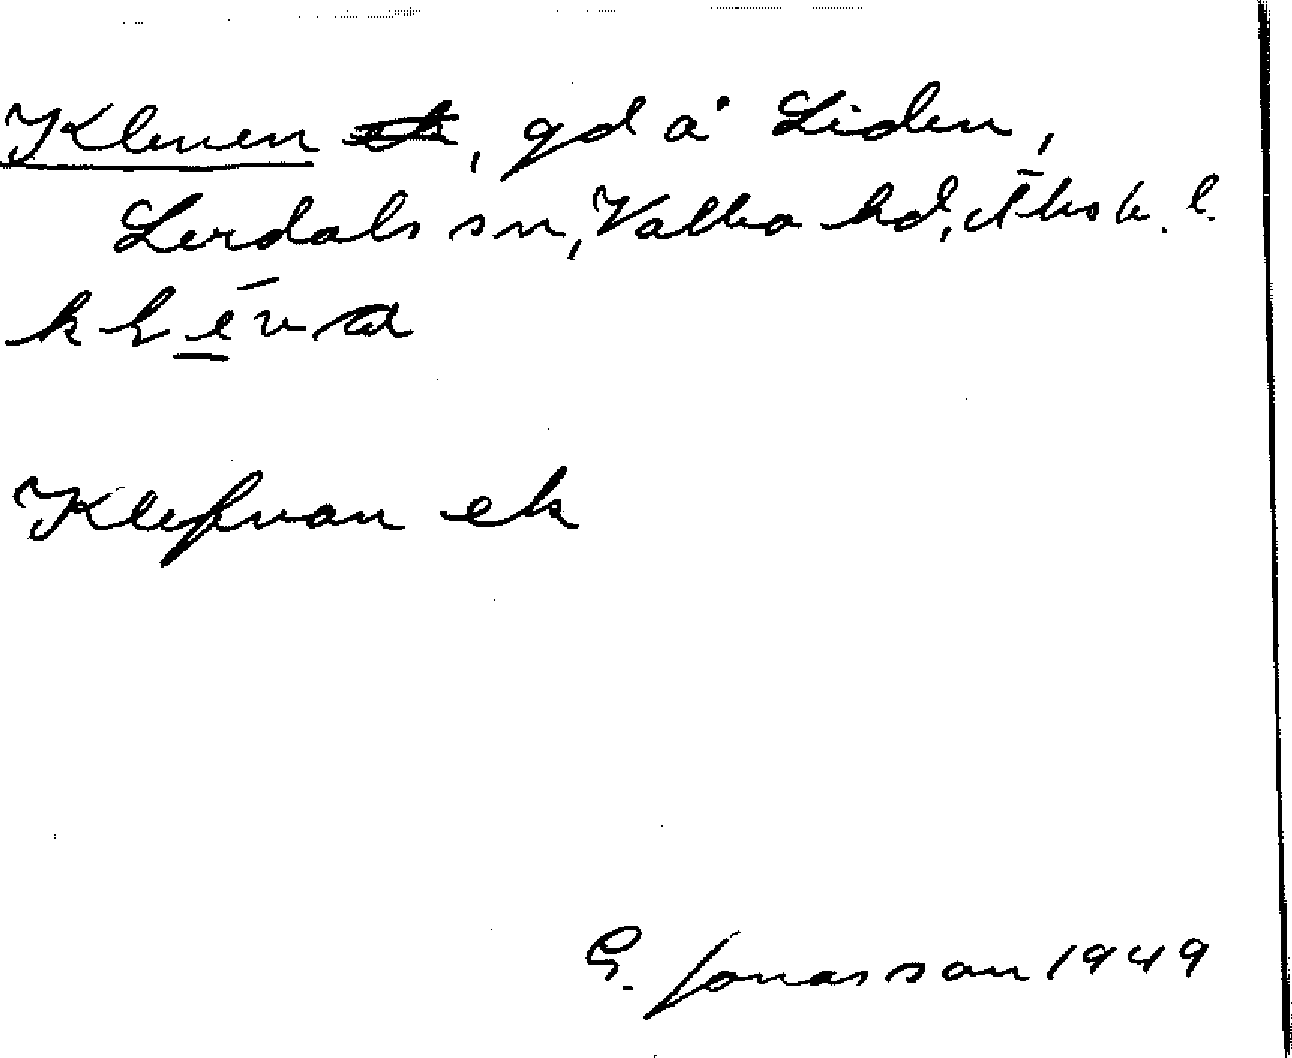 Kleven, gd å Liden,
Lerdals sn, Valbo hd, Älvsb. l.
klēva
Klefvan ek
E. Jonasson 1949